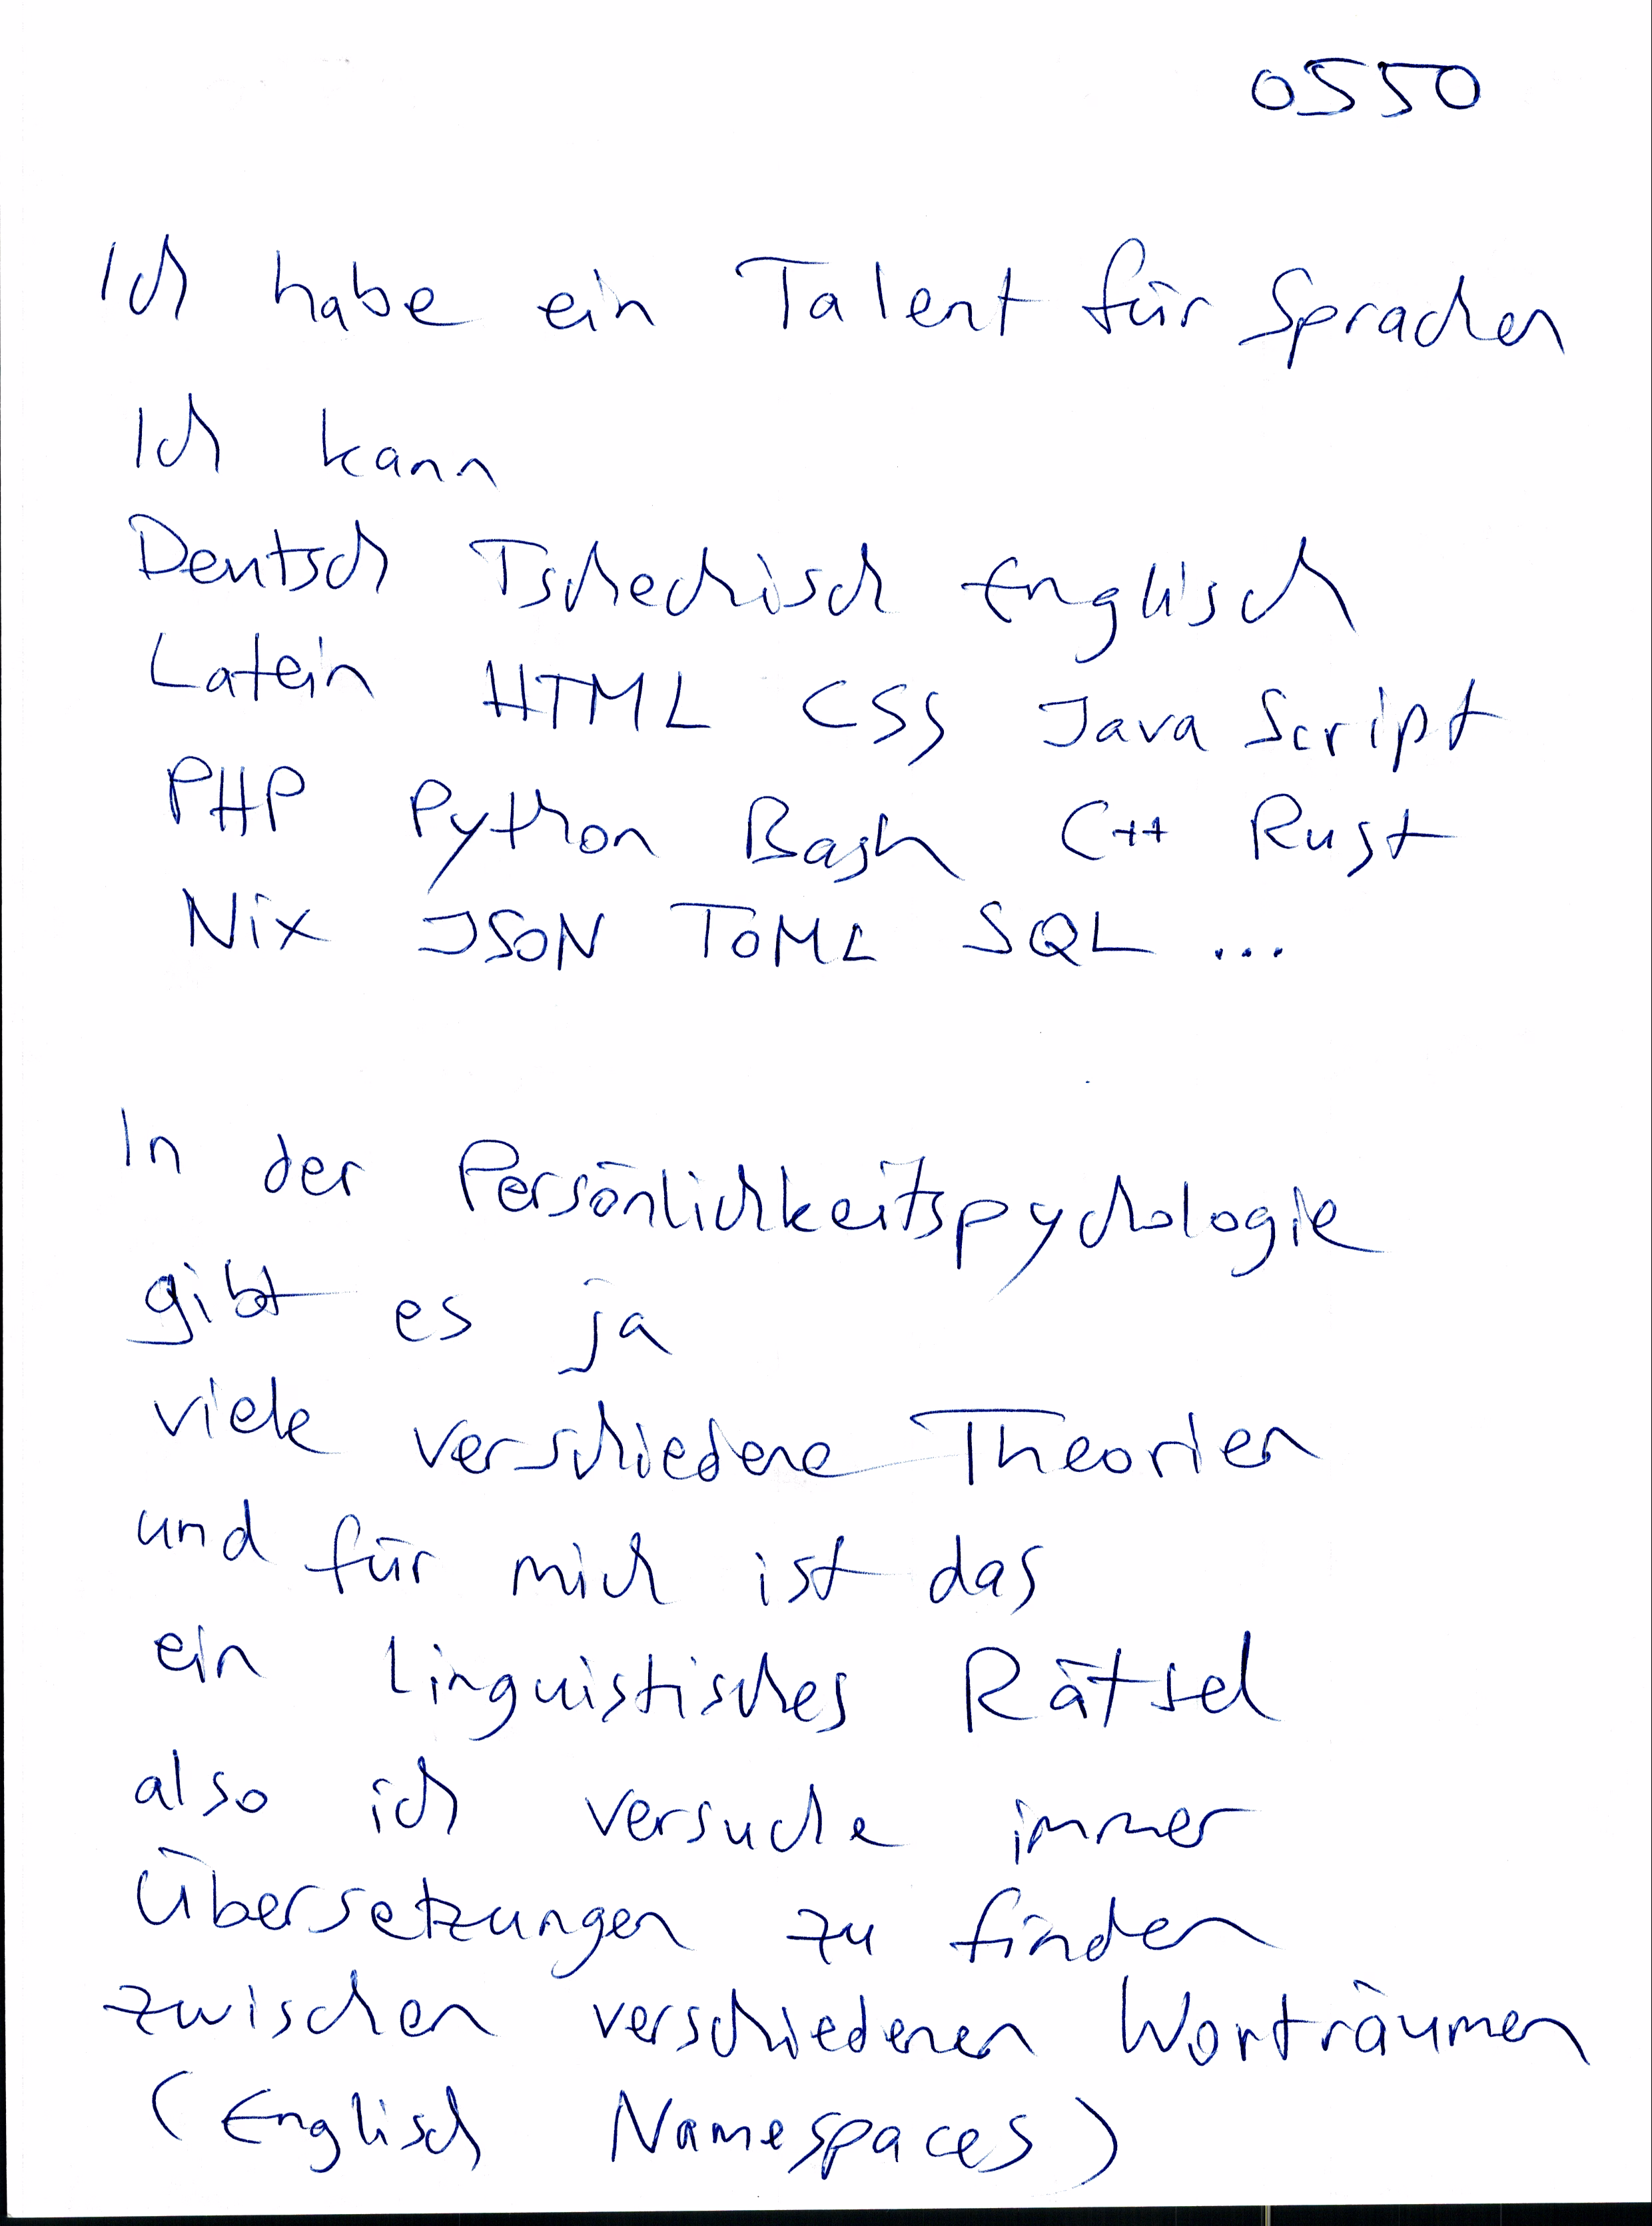 0550
Ich habe ein Talent für Sprachen
Ich kann
Deutsch Tschechisch Englisch
Latein HTML CSS JavaScript
PHP Python Bash C++ Rust
Nix JSON TOML SQL ...
In der Persönlichkeitspychologie
gibt es ja
viele verschiedene Theorien
und für mich ist das
ein linguistisches Rätsel
also ich versuche immer
Übersetzungen zu finden
zwischen verschiedenen Worträumen
(Englisch Namespaces)